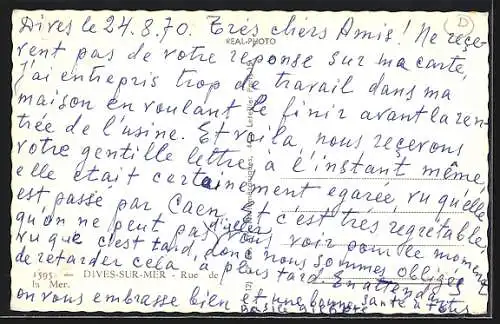 Dives le 24.8.70. Très chers Amis! Ne rece-
REAL-PHOTO
vent pas de votre reponse sur ma carte,
j'ai entrepris trop de travail dans ma
maison en voulant le finir avant la ren-
trée de l'usine. Et voila, nous recevons
votre gentille lettre à l'instant même,
elle était certainement egarée, vu qu'elle
est passé par Caen, et c'est très regretable
qu'on ne peut pas d'aller vous voir pour le moment
vu que c'est tard, donc nous sommes obligés
de retarder cela à plus tard. En attendant
1595 — DIVES-SUR-MER - Rue de
la Mer.
on vous embrasse bien et une bonne santé à tous